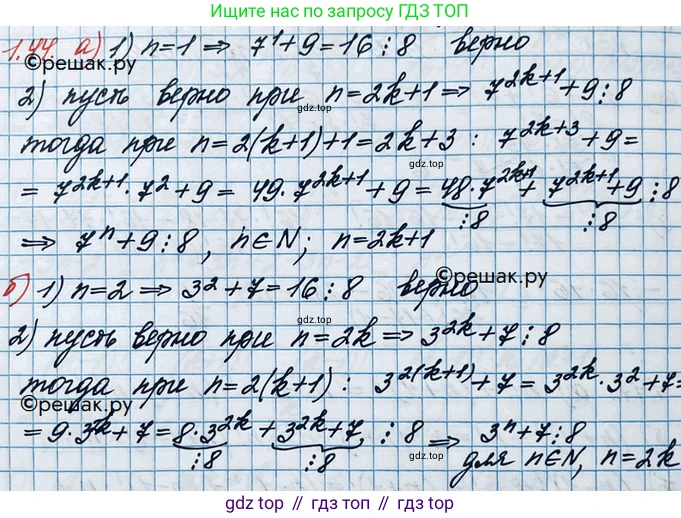 Ищите нас по запросу ГДЗ ТОП
1.44 а) 1) n=1 ⇒ 7¹+9=16⋮8 верно
©решак.ру
2) пусть верно при n=2k+1 ⇒ 7^{2k+1}+9⋮8
gdz top
тогда при n=2(k+1)+1=2k+3 : 7^{2k+3}+9=
gdz.top
= 7^{2k+1}·7²+9= 49·7^{2k+1}+9=48·7^{2k+1}+7^{2k+1}+9⋮8
⋮8 ⋮8
⇒ 7ⁿ+9⋮8, n∈N; n=2k+1
©решак.ру
б) 1) n=2 ⇒ 3²+7=16⋮8 верно
2) пусть верно при n=2k ⇒ 3^{2k}+7⋮8
тогда при n=2(k+1): 3^{2(k+1)}+7=3^{2k}·3²+7=
©решак.ру
=9·3^{2k}+7=8·3^{2k}+3^{2k}+7⋮8 ⇒ 3ⁿ+7⋮8
⋮8 ⋮8 gdz.top для n∈N, n=2k
gdz top // гдз топ // gdz.top